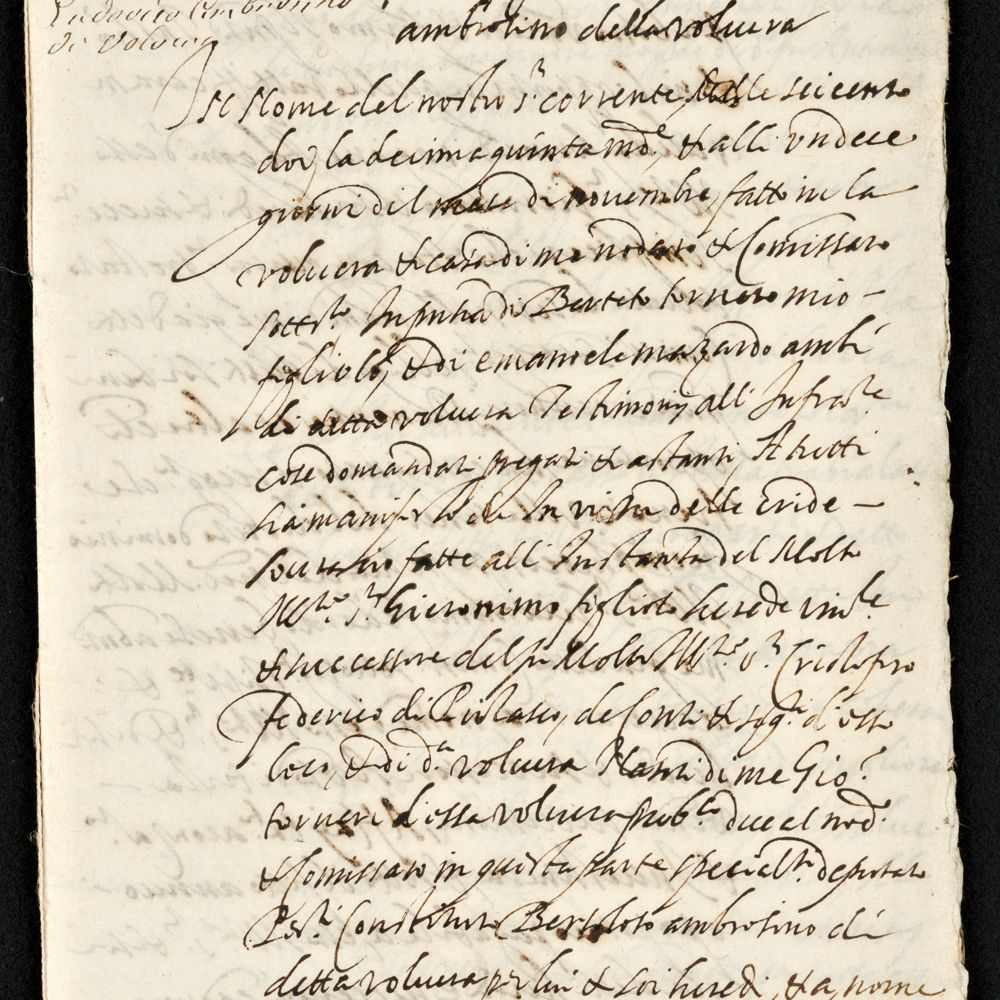 Ludovico Ambrosino
di Volvera
ambrosino della voluera
Nel Nome del nostro Sr corrente mille seicento
doi la decimaquinta indne & alli undece
giorni del mese di novembre fatto in la
voluera & casa di me nodaro & Comissaro
sottto In pntia di Berteto tornero mio
figliolo, & di emanoele mazardo ambi
di detta voluera Testimonij all' Infratte
cose domandati pregati & astanti, A tutti
sia manifesto che In virtu delle cride
fatte all' Instantia del Molto
Illre Sr hieronimo figliolo herede unle
& successore del fu Molto Illre Sr Cristoforo
federico di Piolasco, de Conti & sigri d'esso
loco, & di da voluera Nanti di me Gio.
torneri d'essa voluera pubco ducal nod.
& Comissaro in questa parte specialte deputato
Constituto Bertoloto ambrosino di
detta voluera per lui & soi heredi, & a, nome